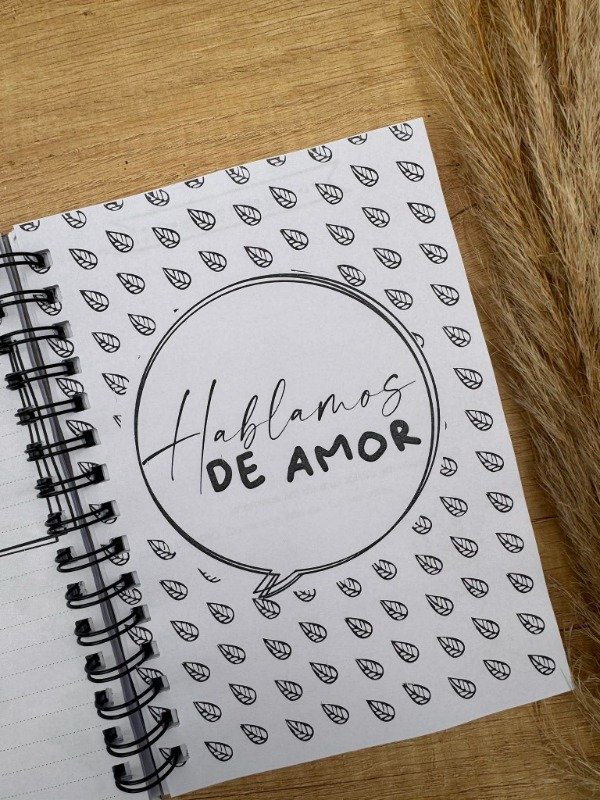 Hablamos
DE AMOR